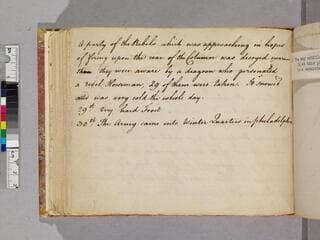 A party of the Rebels which was approaching in hopes
of firing upon the rear of the Column was decoyed
they were aware by a dragoon who personated
a rebel Horseman, 29 of them were taken. It snowed
was very cold the whole day.
29th Very hard Frost
30th The Army came into Winter Quarters in philadelphia